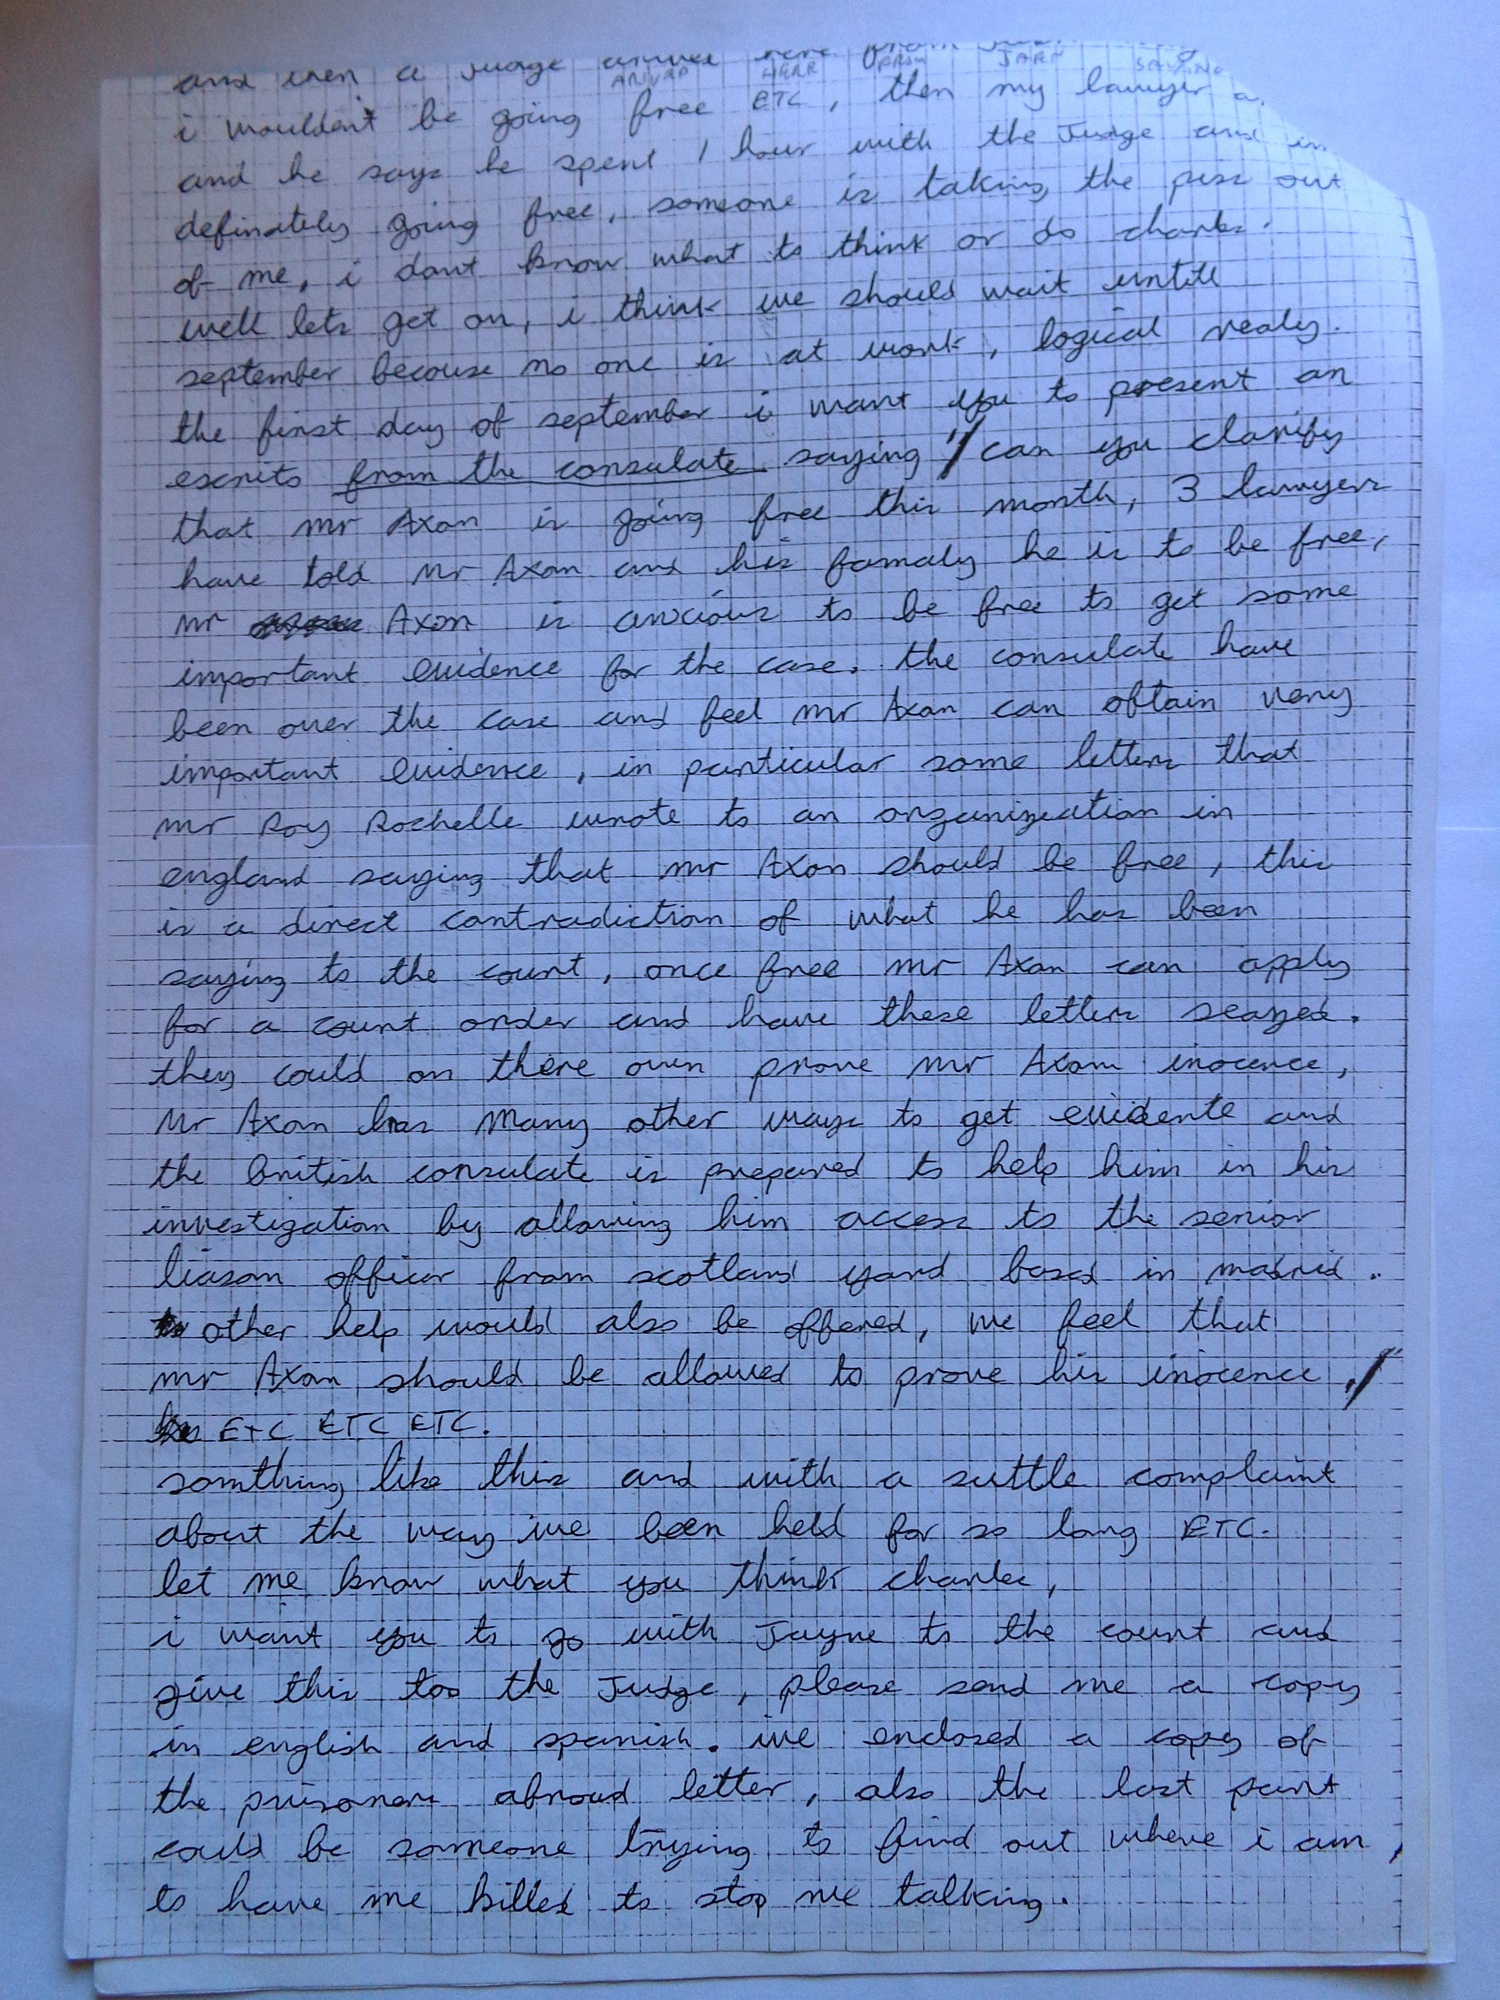 and then a Judge
ARIVRD HERE FROM SAYING
i wouldent be going free ETC, then my lawyer
and he says he spent 1 hour with the Judge and
definately going free, someone is taking the piss out
of me, i dont know what to think or do charles.
well lets get on, i think we should wait untill
september becouse no one is at work, logical realy.
the first day of september i want you to present an
escrito from the consulate saying "can you clarify
that mr Axon is going free this month, 3 lawyers
have told mr Axon and his famaly he is to be free,
mr Axon is anxcious to be free to get some
important evidence for the case. the consulate have
been over the case and feel mr Axon can obtain very
important evidence, in particular some letters that
mr Roy Rochelle wrote to an organization in
england saying that mr Axon should be free, this
is a direct contradiction of what he has been
saying to the court, once free mr Axon can apply
for a court order and have these letters seazed.
they could on there own prove mr Axons inocence,
Mr Axon has many other ways to get evidente and
the british consulate is prepared to help him in his
investigation by allowing him access to the senior
liason officer from scotland yard based in madrid.
other help would also be offered, we feel that
mr Axon should be allowed to prove his inocence."
ETC ETC ETC.
somthing like this and with a suttle complaint
about the way ive been held for so long ETC.
let me know what you think charles,
i want you to go with Jayne to the court and
give this too the Judge, please send me a copy
in english and spanish. ive enclosed a copy of
the prisoners abroad letter, also the last part
could be someone trying to find out where i am,
to have me killed to stop me talking.